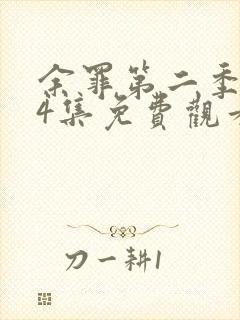 余罪第二季
4集免費觀看
刀一耕1